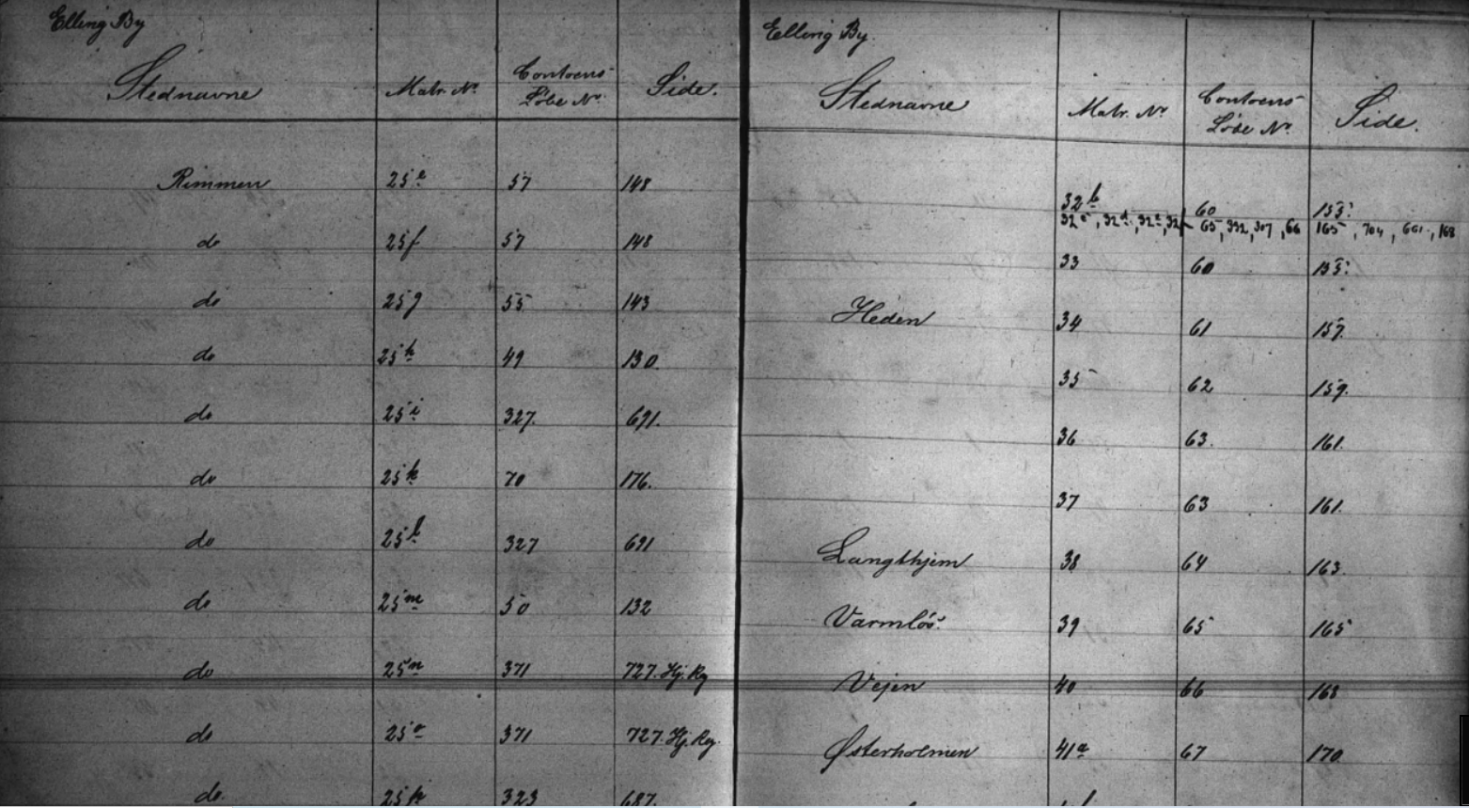 Elling By
Stednavne Matr. Nr. Contoens Löbe Nr. Side.
Rimmen 25e 57 148
do 25f 57 148
do 25g 55 143
do 25h 49 130.
do 25i 327. 691.
do 25k 70 176.
do 25l 327 691
do 25m 50 132
do 25n 371 727. Hj. Rg
do 25o 371 727. Hj. Rg.
do. 25p 323 687.
Elling By.
Stednavne Matr. Nr. Contoens Löbe Nr. Side.
32b 60 155.
32c, 32d, 32e, 32f 65, 332, 307, 66 165, 704, 661, 168
33 60 155.
Heden 34 61 157.
35 62 159.
36 63. 161.
37 63 161.
Langthjem 38 64 163.
Varmlös. 39 65 165
Vejen 40 66 168
Østerholmen 41a 67 170